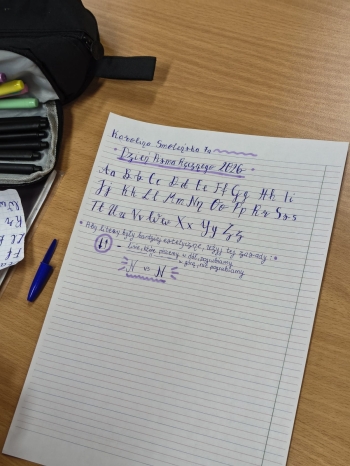 Karolina Smolińska 7a
Dzień Pisma Ręcznego 2026
Aa Bb Cc Dd Ee Ff Gg Hh Ii
Jj Kk Ll Mm Nn Oo Pp Rr Ss
Tt Uu Vv Ww Xx Yy Zz
* Aby litery były bardziej estetyczne, użyj tej zasady:
- Linie, które piszemy w dół, pogrubiamy,
w górę, nie pogrubiamy.
N vs N